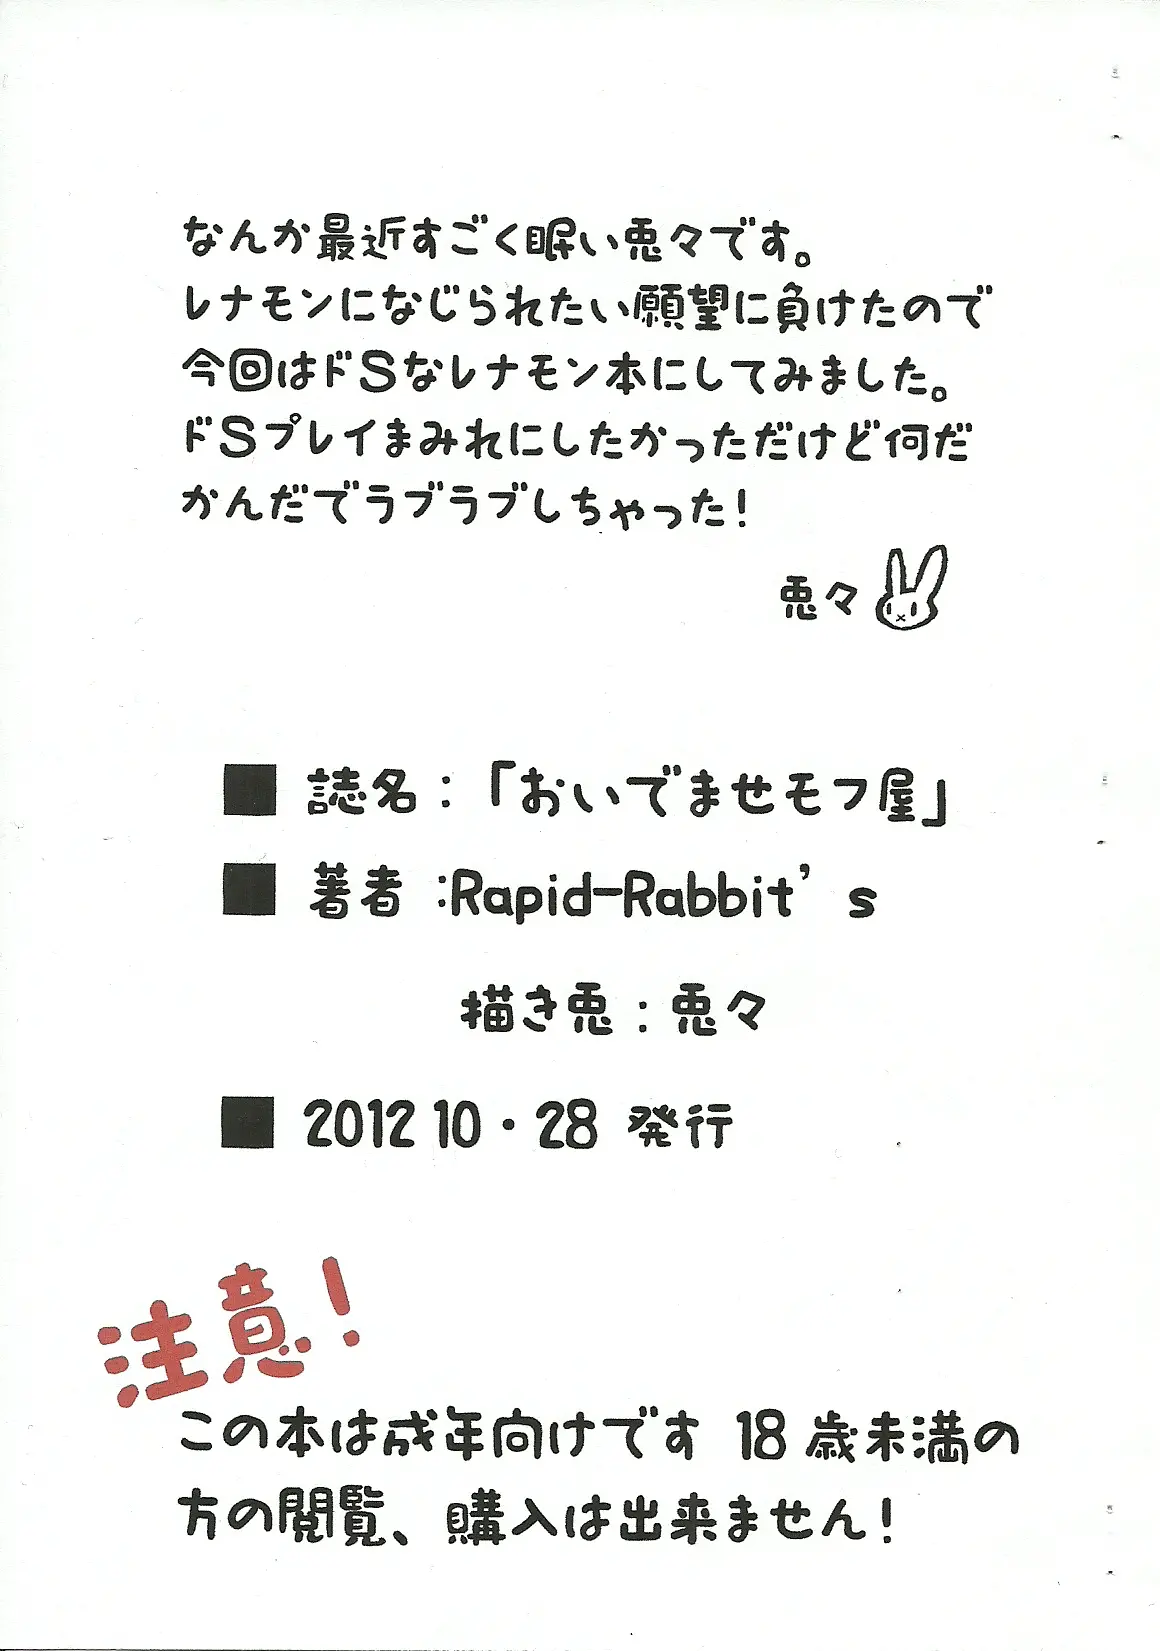 なんか最近すごく眠い兎々です。
レナモンになじられたい願望に負けたので
今回はドSなレナモン本にしてみました。
ドSプレイまみれにしたかっただけど何だ
かんだでラブラブしちゃった!
兎々
■ 誌名:「おいでませモフ屋」
■ 著者 :Rapid-Rabbit's
描き兎:兎々
■ 2012 10・28 発行
注意!
この本は成年向けです 18 歳未満の
方の閲覧、購入は出来ません!